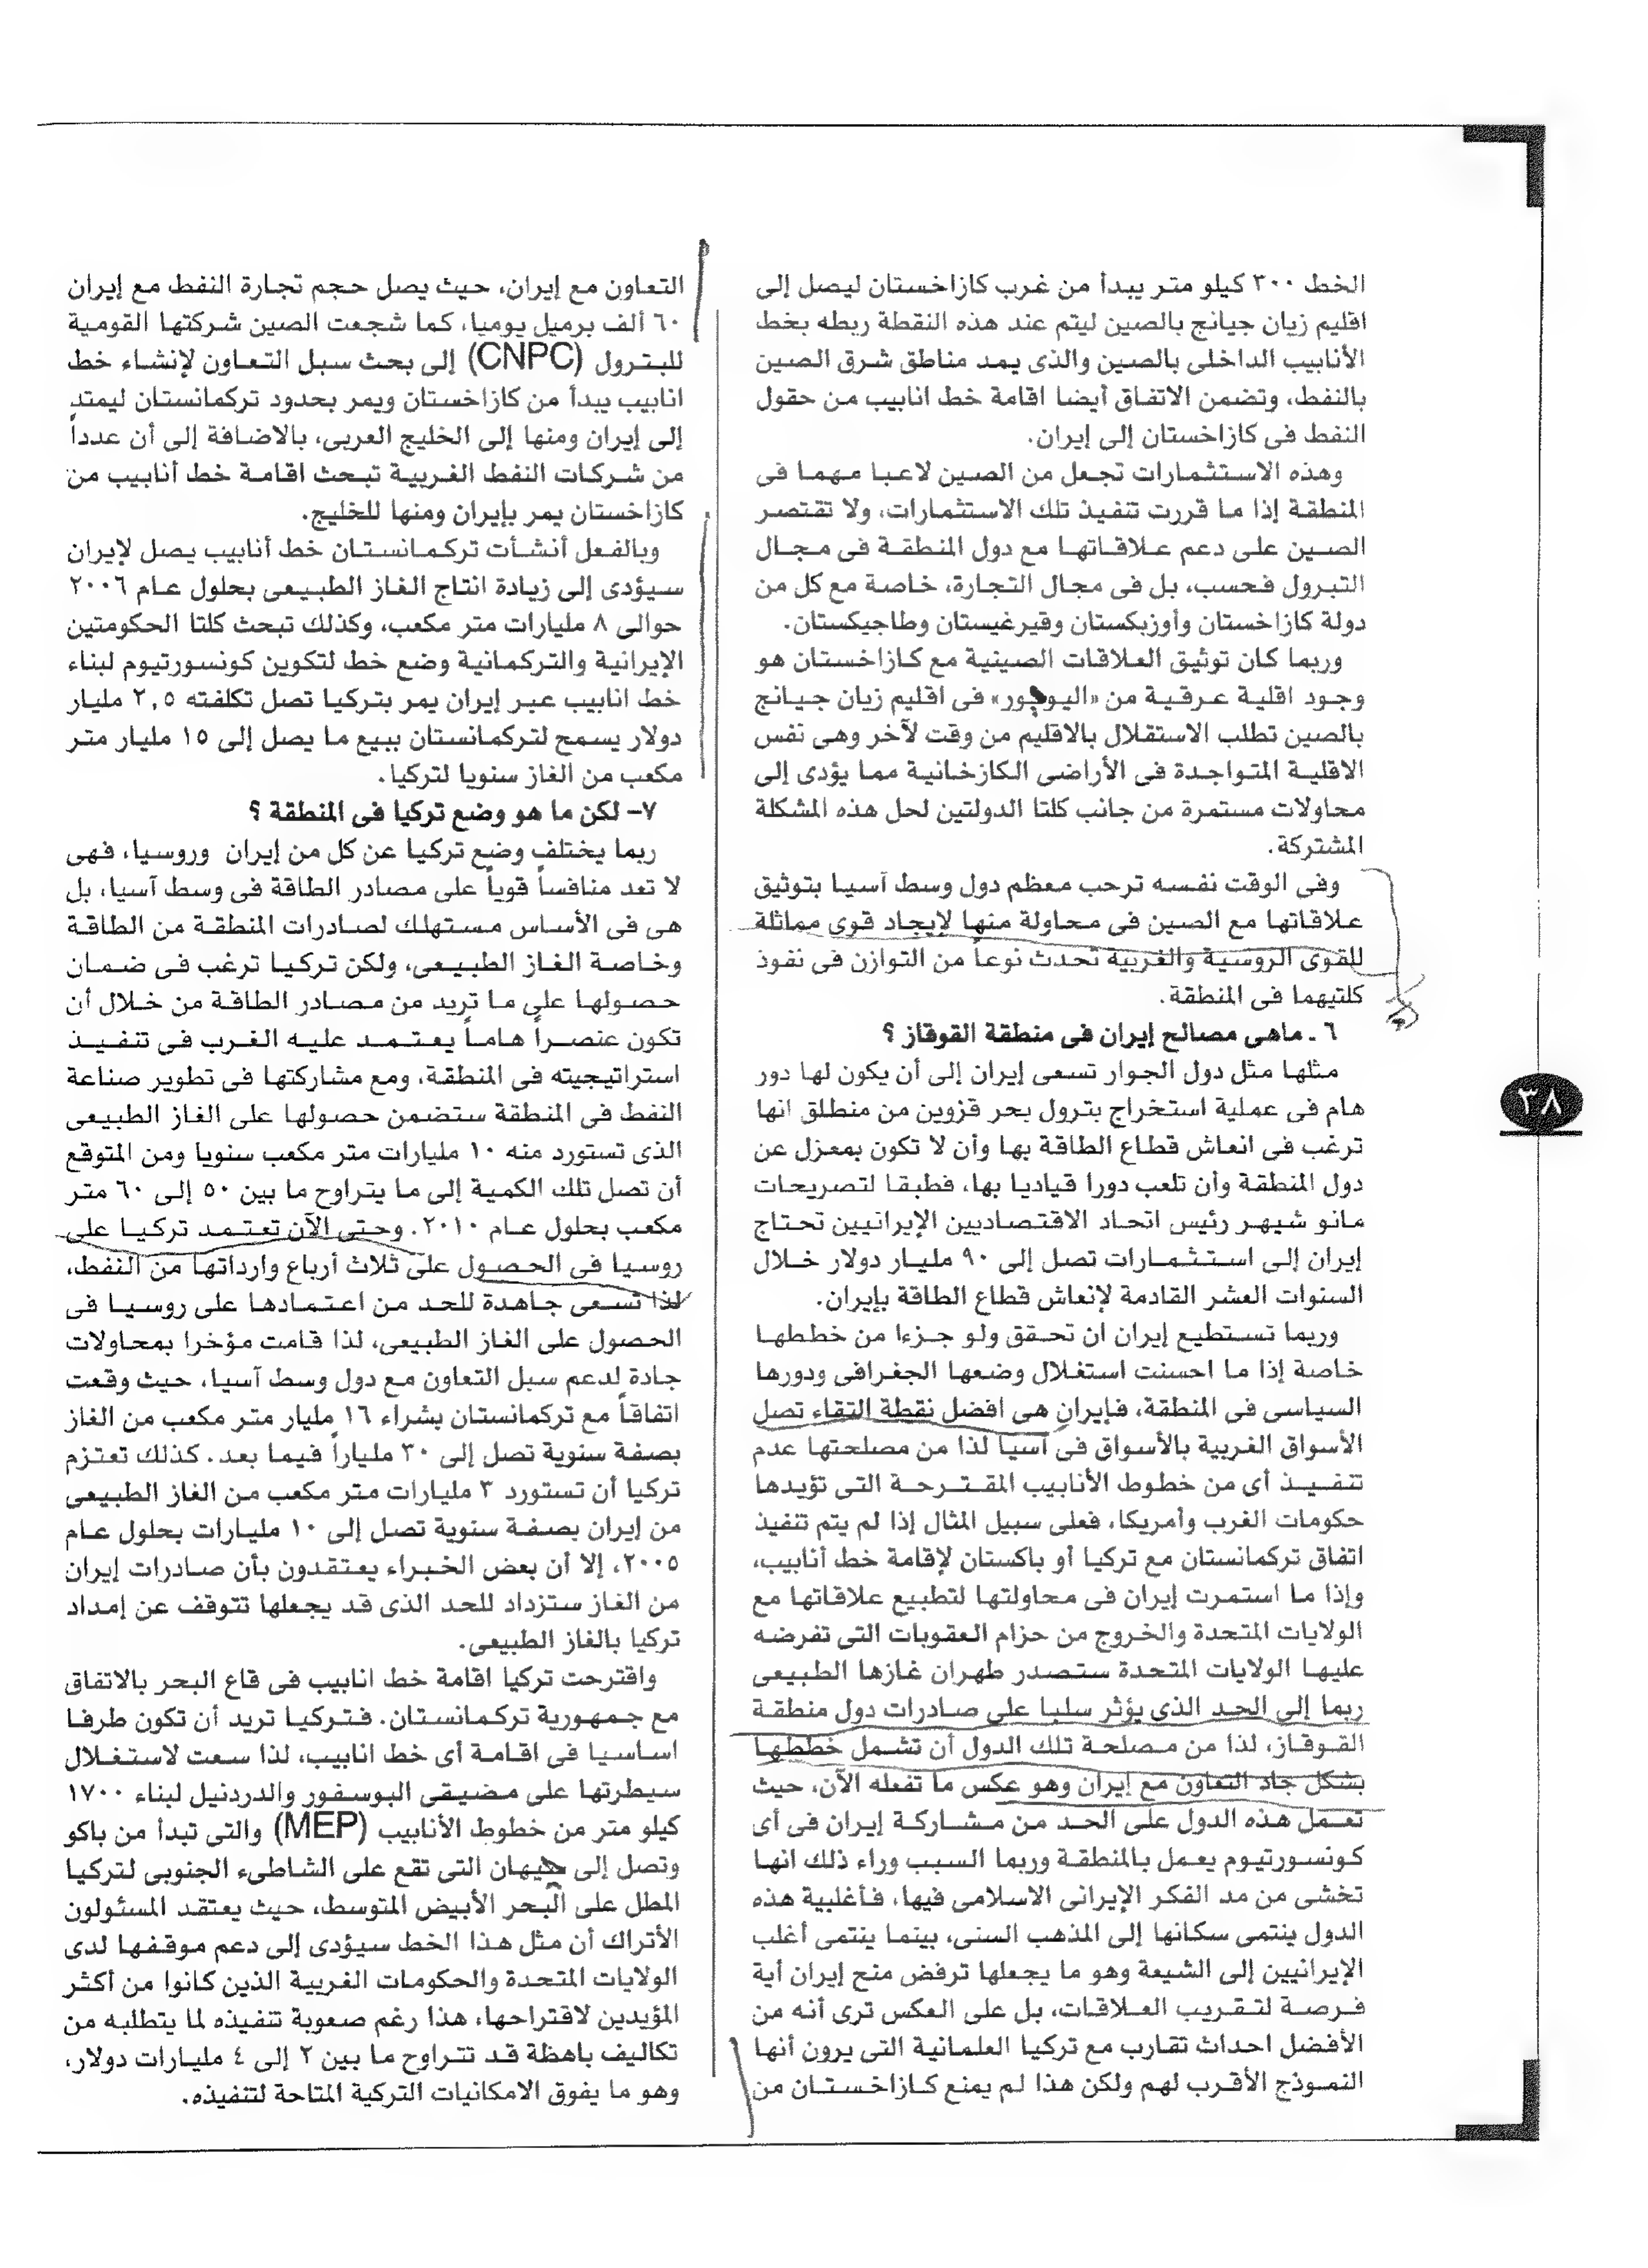 الخط ٣٠٠ كيلو متر يبدأ من غرب كازاخستان ليصل إلى
اقليم زيان جيانج بالصين ليتم عند هذه النقطة ربطه بخط
الأنابيب الداخلى بالصين والذى يمد مناطق شرق الصين
بالنفط، وتضمن الاتفاق أيضا اقامة خط انابيب من حقول
النفط فى كازاخستان إلى إيران.
وهذه الاستثمارات تجعل من الصين لاعبا مهما فى
المنطقة إذا ما قررت تنفيذ تلك الاستثمارات، ولا تقتصر
الصين على دعم علاقاتها مع دول المنطقة فى مجال
التبرول فحسب، بل فى مجال التجارة، خاصة مع كل من
دولة كازاخستان وأوزبكستان وقيرغيستان وطاجيكستان.
وربما كان توثيق العلاقات الصينية مع كازاخستان هو
وجود اقلية عرقية من «اليوجور» فى اقليم زيان جيانج
بالصين تطلب الاستقلال بالاقليم من وقت لآخر وهى نفس
الاقلية المتواجدة فى الأراضى الكازخانية مما يؤدى إلى
محاولات مستمرة من جانب كلتا الدولتين لحل هذه المشكلة
المشتركة.
وفى الوقت نفسه ترحب معظم دول وسط آسيا بتوثيق
علاقاتها مع الصين فى محاولة منها لإيجاد قوى مماثلة
للقوى الروسية والغربية تحدث نوعاً من التوازن فى نفوذ
كلتيهما فى المنطقة.
٦ ـ ماهى مصالح إيران فى منطقة القوقاز ؟
مثلها مثل دول الجوار تسعى إيران إلى أن يكون لها دور
هام فى عملية استخراج بترول بحر قزوين من منطلق انها
ترغب فى انعاش قطاع الطاقة بها وأن لا تكون بمعزل عن
دول المنطقة وأن تلعب دورا قياديا بها، فطبقا لتصريحات
مانو شيهر رئيس اتحاد الاقتصاديين الإيرانيين تحتاج
إيران إلى استثمارات تصل إلى ٩٠ مليار دولار خلال
السنوات العشر القادمة لإنعاش قطاع الطاقة بإيران.
وربما تستطيع إيران ان تحقق ولو جزءا من خططها
خاصة إذا ما احسنت استغلال وضعها الجغرافى ودورها
السياسى فى المنطقة، فإيران هى افضل نقطة التقاء تصل
الأسواق الغربية بالأسواق فى آسيا لذا من مصلحتها عدم
تنفيذ أى من خطوط الأنابيب المقترحة التى تؤيدها
حكومات الغرب وأمريكا، فعلى سبيل المثال إذا لم يتم تنفيذ
اتفاق تركمانستان مع تركيا أو باكستان لإقامة خط أنابيب،
وإذا ما استمرت إيران فى محاولتها لتطبيع علاقاتها مع
الولايات المتحدة والخروج من حزام العقوبات التى تفرضه
عليها الولايات المتحدة ستصدر طهران غازها الطبيعى
ربما إلى الحد الذى يؤثر سلبا على صادرات دول منطقة
القوقاز، لذا من مصلحة تلك الدول أن تشمل خططها
بشكل جاد التعاون مع إيران وهو عكس ما تفعله الآن، حيث
تعمل هذه الدول على الحد من مشاركة إيران فى أى
كونسورتيوم يعمل بالمنطقة وربما السبب وراء ذلك انها
تخشى من مد الفكر الإيرانى الاسلامى فيها، فأغلبية هذه
الدول ينتمى سكانها إلى المذهب السنى، بينما ينتمى أغلب
الإيرانيين إلى الشيعة وهو ما يجعلها ترفض منح إيران أية
فرصة لتقريب العلاقات، بل على العكس ترى أنه من
الأفضل احداث تقارب مع تركيا العلمانية التى يرون أنها
النموذج الأقرب لهم ولكن هذا لم يمنع كازاخستان من
التعاون مع إيران، حيث يصل حجم تجارة النفط مع إيران
٦٠ ألف برميل يوميا، كما شجعت الصين شركتها القومية
للبترول (CNPC) إلى بحث سبل التعاون لإنشاء خط
انابيب يبدأ من كازاخستان ويمر بحدود تركمانستان ليمتد
إلى إيران ومنها إلى الخليج العربى، بالاضافة إلى أن عدداً
من شركات النفط الغربية تبحث اقامة خط أنابيب من
كازاخستان يمر بإيران ومنها للخليج.
وبالفعل أنشأت تركمانستان خط أنابيب يصل لإيران
سيؤدى إلى زيادة انتاج الغاز الطبيعى بحلول عام ٢٠٠٦
حوالى ٨ مليارات متر مكعب، وكذلك تبحث كلتا الحكومتين
الإيرانية والتركمانية وضع خط لتكوين كونسورتيوم لبناء
خط انابيب عبر إيران يمر بتركيا تصل تكلفته ٢,٥ مليار
دولار يسمح لتركمانستان ببيع ما يصل إلى ١٥ مليار متر
مكعب من الغاز سنويا لتركيا.
٧- لكن ما هو وضع تركيا فى المنطقة ؟
ربما يختلف وضع تركيا عن كل من إيران وروسيا، فهى
لا تعد منافساً قوياً على مصادر الطاقة فى وسط آسيا، بل
هى فى الأساس مستهلك لصادرات المنطقة من الطاقة
وخاصة الغاز الطبيعى، ولكن تركيا ترغب فى ضمان
حصولها على ما تريد من مصادر الطاقة من خلال أن
تكون عنصراً هاماً يعتمد عليه الغرب فى تنفيذ
استراتيجيته فى المنطقة، ومع مشاركتها فى تطوير صناعة
النفط فى المنطقة ستضمن حصولها على الغاز الطبيعى
الذى تستورد منه ١٠ مليارات متر مكعب سنويا ومن المتوقع
أن تصل تلك الكمية إلى ما يتراوح ما بين ٥٠ إلى ٦٠ متر
مكعب بحلول عام ٢٠١٠. وحتى الآن تعتمد تركيا على
روسيا فى الحصول على ثلاث أرباع وارداتها من النفط،
لذا تسعى جاهدة للحد من اعتمادها على روسيا فى
الحصول على الغاز الطبيعى، لذا قامت مؤخرا بمحاولات
جادة لدعم سبل التعاون مع دول وسط آسيا، حيث وقعت
اتفاقاً مع تركمانستان بشراء ١٦ مليار متر مكعب من الغاز
بصفة سنوية تصل إلى ٣٠ ملياراً فيما بعد. كذلك تعتزم
تركيا أن تستورد ٣ مليارات متر مكعب من الغاز الطبيعى
من إيران بصفة سنوية تصل إلى ١٠ مليارات بحلول عام
٢٠٠٥، إلا أن بعض الخبراء يعتقدون بأن صادرات إيران
من الغاز ستزداد للحد الذى قد يجعلها تتوقف عن إمداد
تركيا بالغاز الطبيعى.
واقترحت تركيا اقامة خط انابيب فى قاع البحر بالاتفاق
مع جمهورية تركمانستان. فتركيا تريد أن تكون طرفا
اساسيا فى اقامة أى خط انابيب، لذا سعت لاستغلال
سيطرتها على مضيقى البوسفور والدردنيل لبناء ١٧٠٠
كيلو متر من خطوط الأنابيب (MEP) والتى تبدأ من باكو
وتصل إلى جيهان التى تقع على الشاطىء الجنوبى لتركيا
المطل على البحر الأبيض المتوسط، حيث يعتقد المسئولون
الأتراك أن مثل هذا الخط سيؤدى إلى دعم موقفها لدى
الولايات المتحدة والحكومات الغربية الذين كانوا من أكثر
المؤيدين لاقتراحها، هذا رغم صعوبة تنفيذه لما يتطلبه من
تكاليف باهظة قد تتراوح ما بين ٢ إلى ٤ مليارات دولار،
وهو ما يفوق الامكانيات التركية المتاحة لتنفيذه.
٣٨